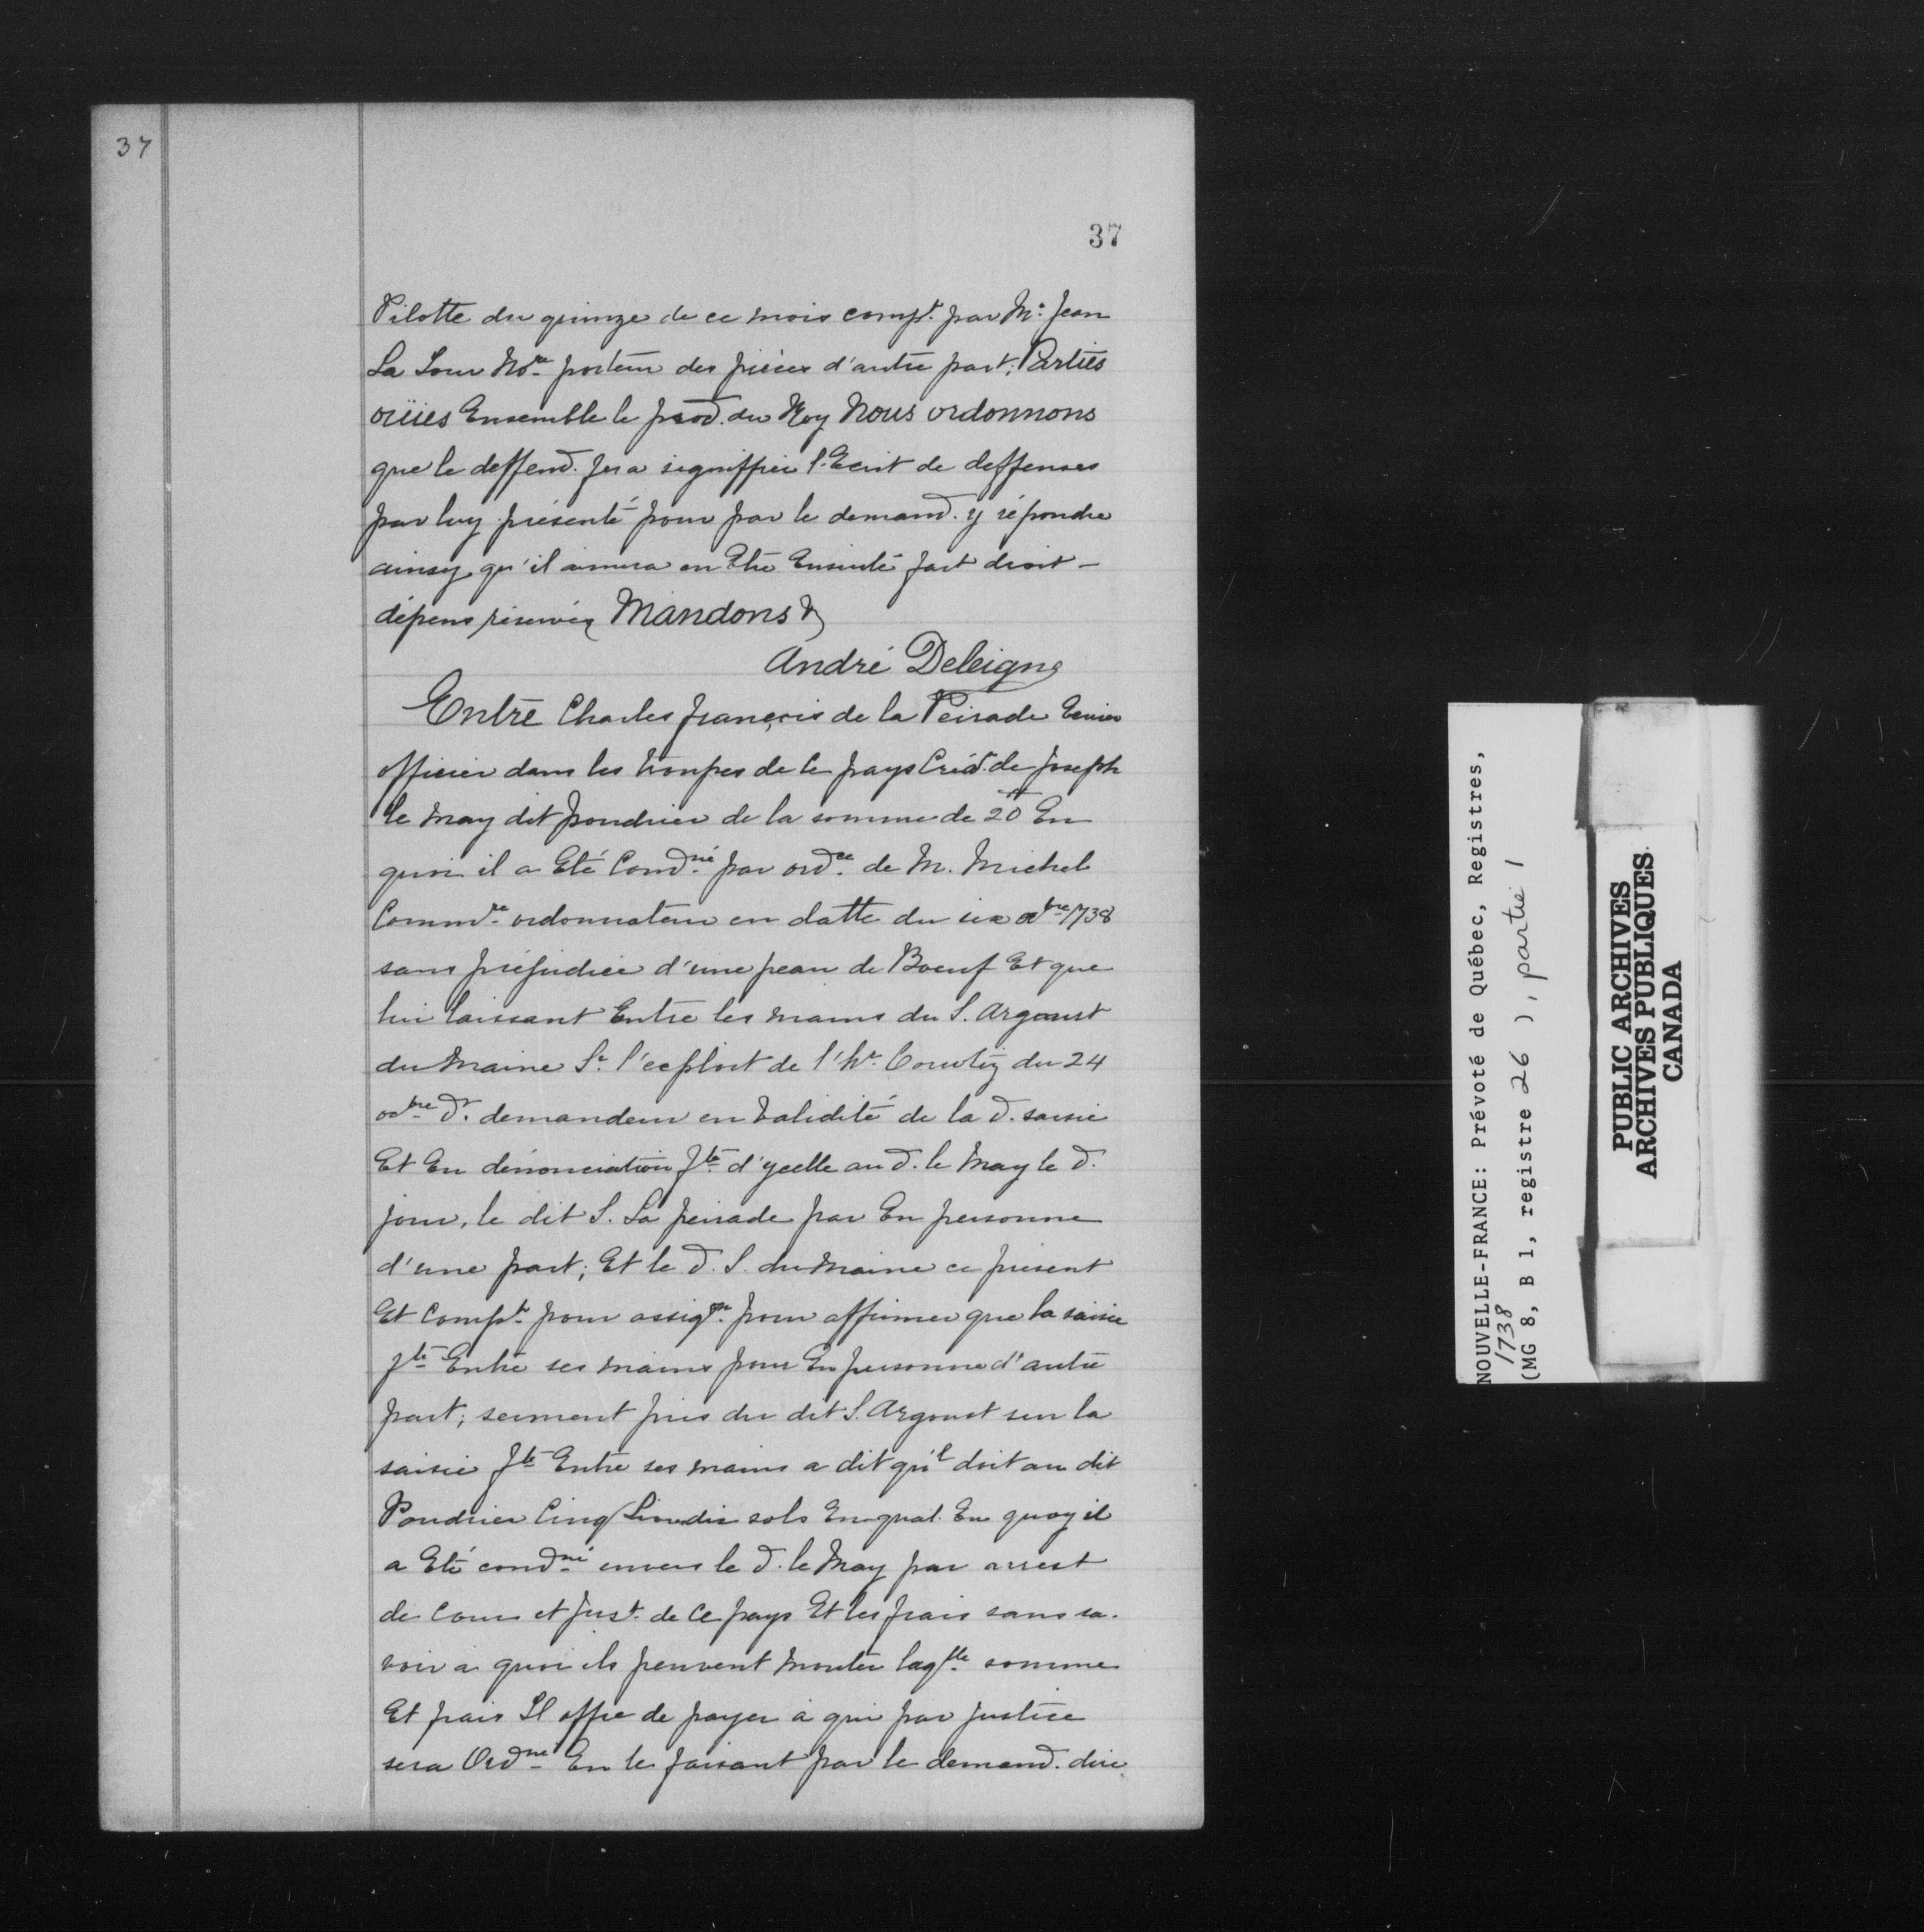 37
37
Pilotte du quinze de ce mois comp.t par M.e Jean
La Tour No.re porteur des pièces d'autre part; Parties
oüies Ensemble le proc. du Roy Nous ordonnons
que le deffend. fera signiffier l'Ecrit de deffenses
par luy présenté pour par le demand. y répondre
ainsy qu'il avisera en Etre Ensuite fait droit -
dépens réservés Mandons &
André Deleigne
Entre Charles françois de la Peirade Ecuier
officier dans les troupes de Ce pays Créd. de joseph
le May dit poudrier de la somme de 20 ͭͭ En
quoi il a Eté Cond.né par ord.ce de M. Michel
Comm.re ordonnateur en datte du six 8bre 1738
sans préjudice d'une peau de Boeuf Et que
lui laissant Entre les mains du S. Argoust
du Maine S.t l'exploit de l'h.r Courtin du 24
8bre d.r demandeur en validité de la d. saisie
Et En dénonciation f.te d'ycelle au d. le May le d.
jour, le dit S. La peirade par En personne
d'une part; Et le d. S. du Maine ce présent
Et Comp.t pour assig.on pour affirmer que la saisie
f.te Entre ses mains pour En personne d'autre
part; serment pris du dit S. Argoust sur la
saisie f.te Entre ses mains a dit qu'il doit au dit
Poudrier Cinq Liv. dix sols En qual. En quoy il
a Eté cond.né envers le d. le May par arrest
de Cour et just. de Ce pays Et les frais sans sa-
voir à quoi ils peuvent monter laq.lle somme
Et frais Il offre de payer à qui par justice
sera Ord.né En le faisant par le demand. dire
NOUVELLE-FRANCE: Prévoté de Québec, Registres,
1738
(MG 8, B 1, registre 26 ), partie 1
PUBLIC ARCHIVES
ARCHIVES PUBLIQUES
CANADA